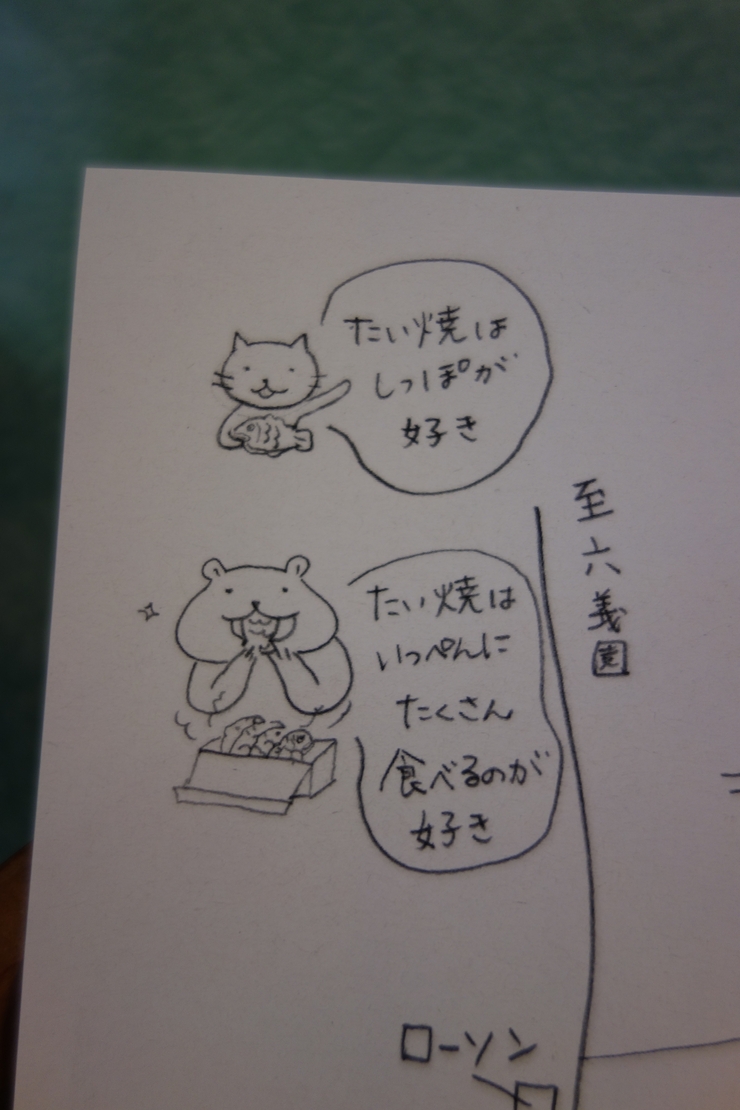 たい焼は
しっぽが
好き
たい焼は
いっぺんに
たくさん
食べるのが
好き
至六義園
ローソン